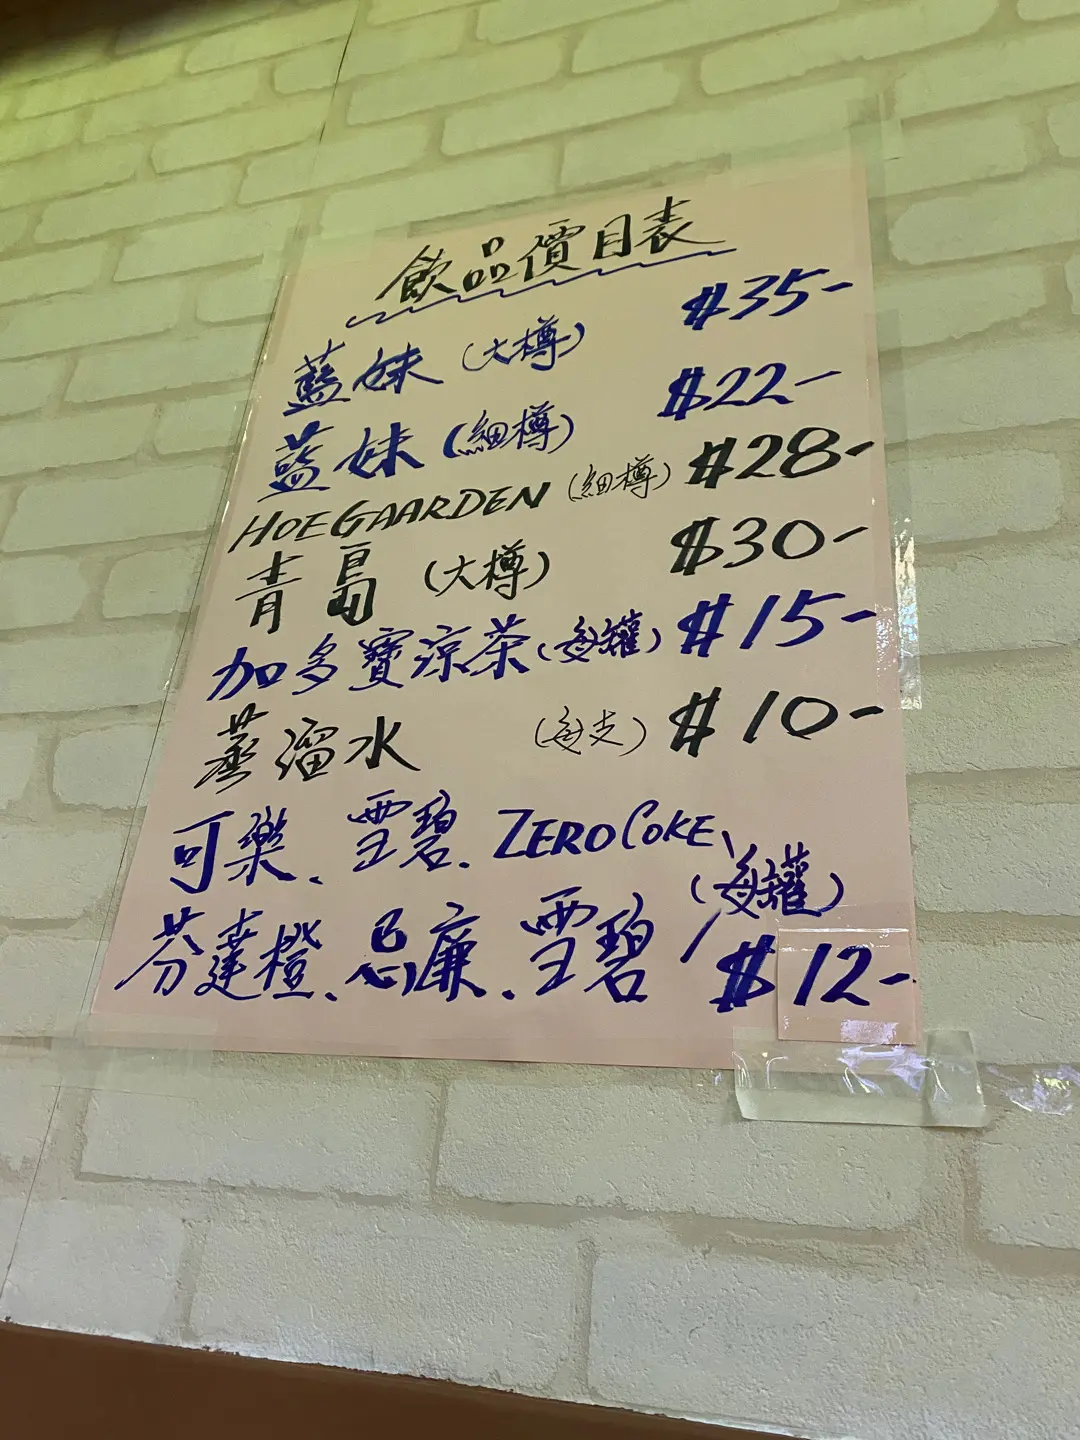 飲品價目表
藍妹（大樽） $35-
藍妹（細樽） $22-
HOEGAARDEN（細樽） $28-
青島（大樽） $30-
加多寶涼茶（每罐） $15-
蒸溜水（每支） $10-
可樂、雪碧、ZERO COKE、
芬達橙、忌廉、雪碧（每罐） $12-